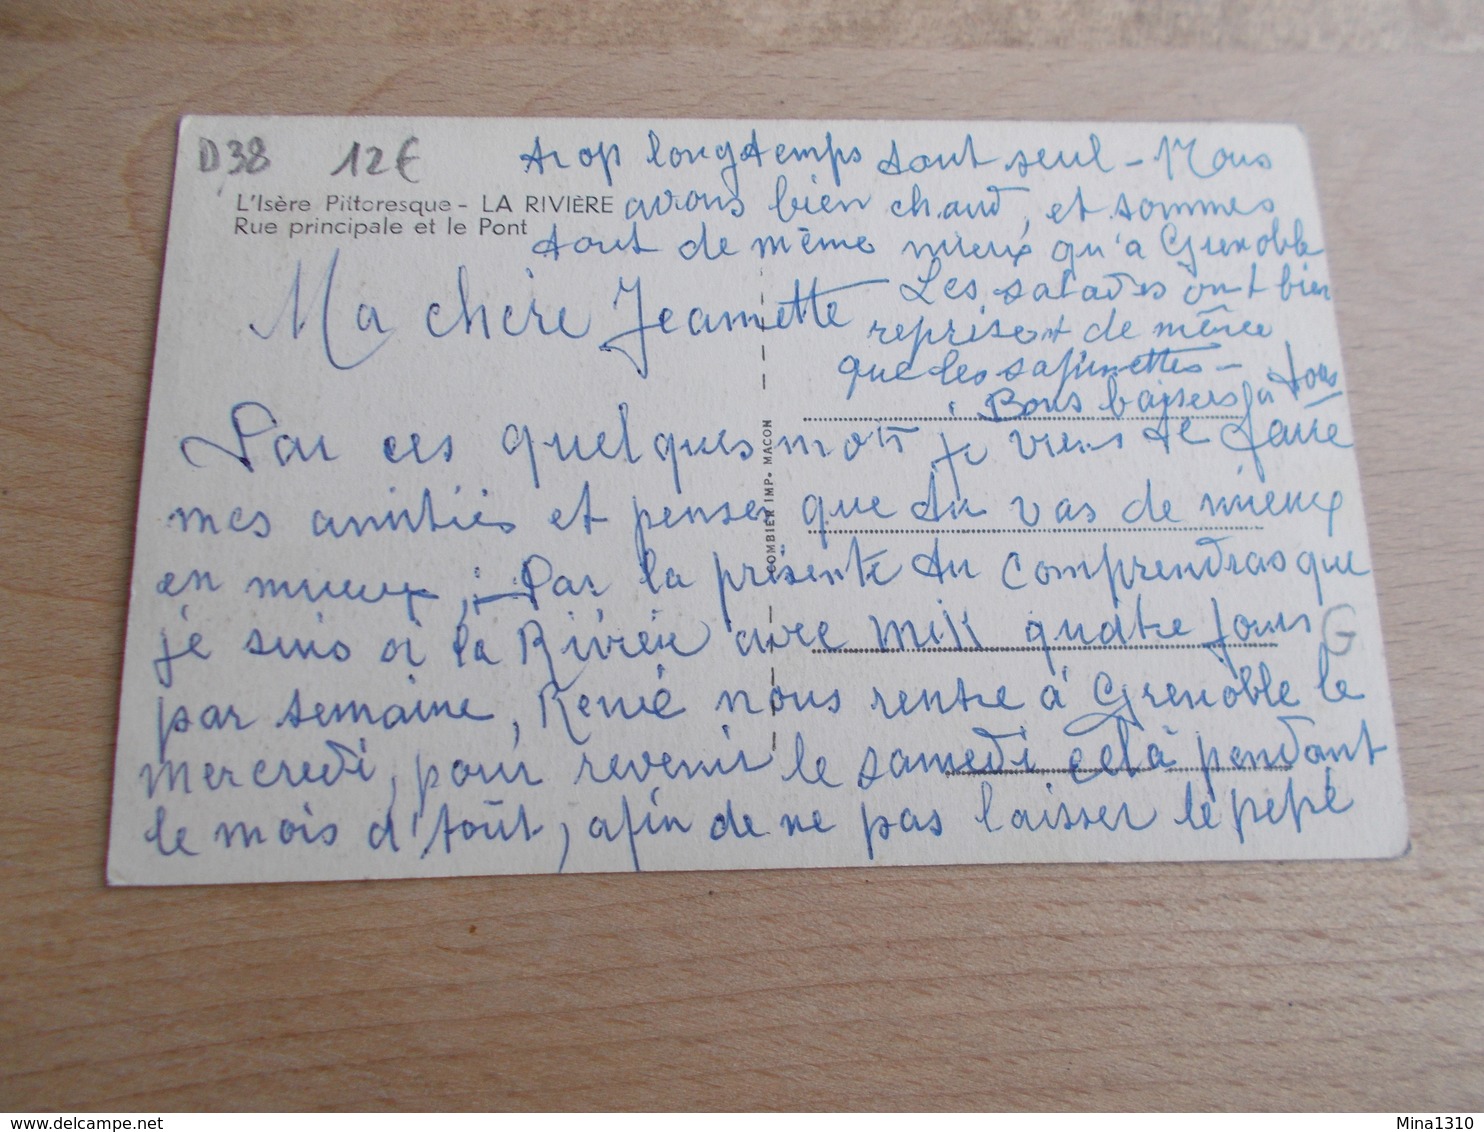 D38 12€
L'Isère Pittoresque - LA RIVIÈRE
Rue principale et le Pont
Ma chère Jeannette
Par ces quelques mots je viens te faire
mes amitiés et penser que tu vas de mieux
en mieux, Par la présente tu comprendras que
je suis à la Rivière avec Mik quatre jours
par semaine, René nous rentre à Grenoble le
mercredi, pour revenir le samedi celà pendant
le mois d'Août, afin de ne pas laisser le pépé
trop longtemps tout seul - Nous
avons bien chaud, et sommes
tout de même mieux qu'à Grenoble
Les salades ont bien
reprises et de même
que les
Bons baisers à tous
COMBIER IMP. MACON
G
Mina1310